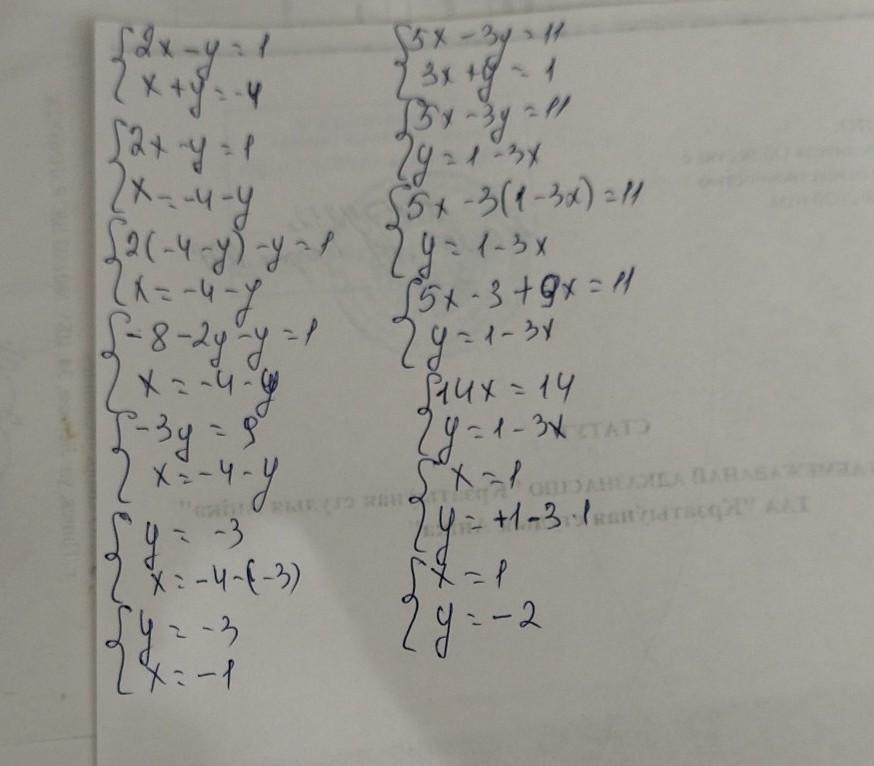 2x - y = 1
x + y = -4
2x - y = 1
x = -4 - y
2(-4 - y) - y = 1
x = -4 - y
-8 - 2y - y = 1
x = -4 - y
-3y = 9
x = -4 - y
y = -3
x = -4 - (-3)
y = -3
x = -1
5x - 3y = 11
3x + y = 1
5x - 3y = 11
y = 1 - 3x
5x - 3(1 - 3x) = 11
y = 1 - 3x
5x - 3 + 9x = 11
y = 1 - 3x
14x = 14
y = 1 - 3x
x = 1
y = +1 - 3·1
x = 1
y = -2
СТАТУТ